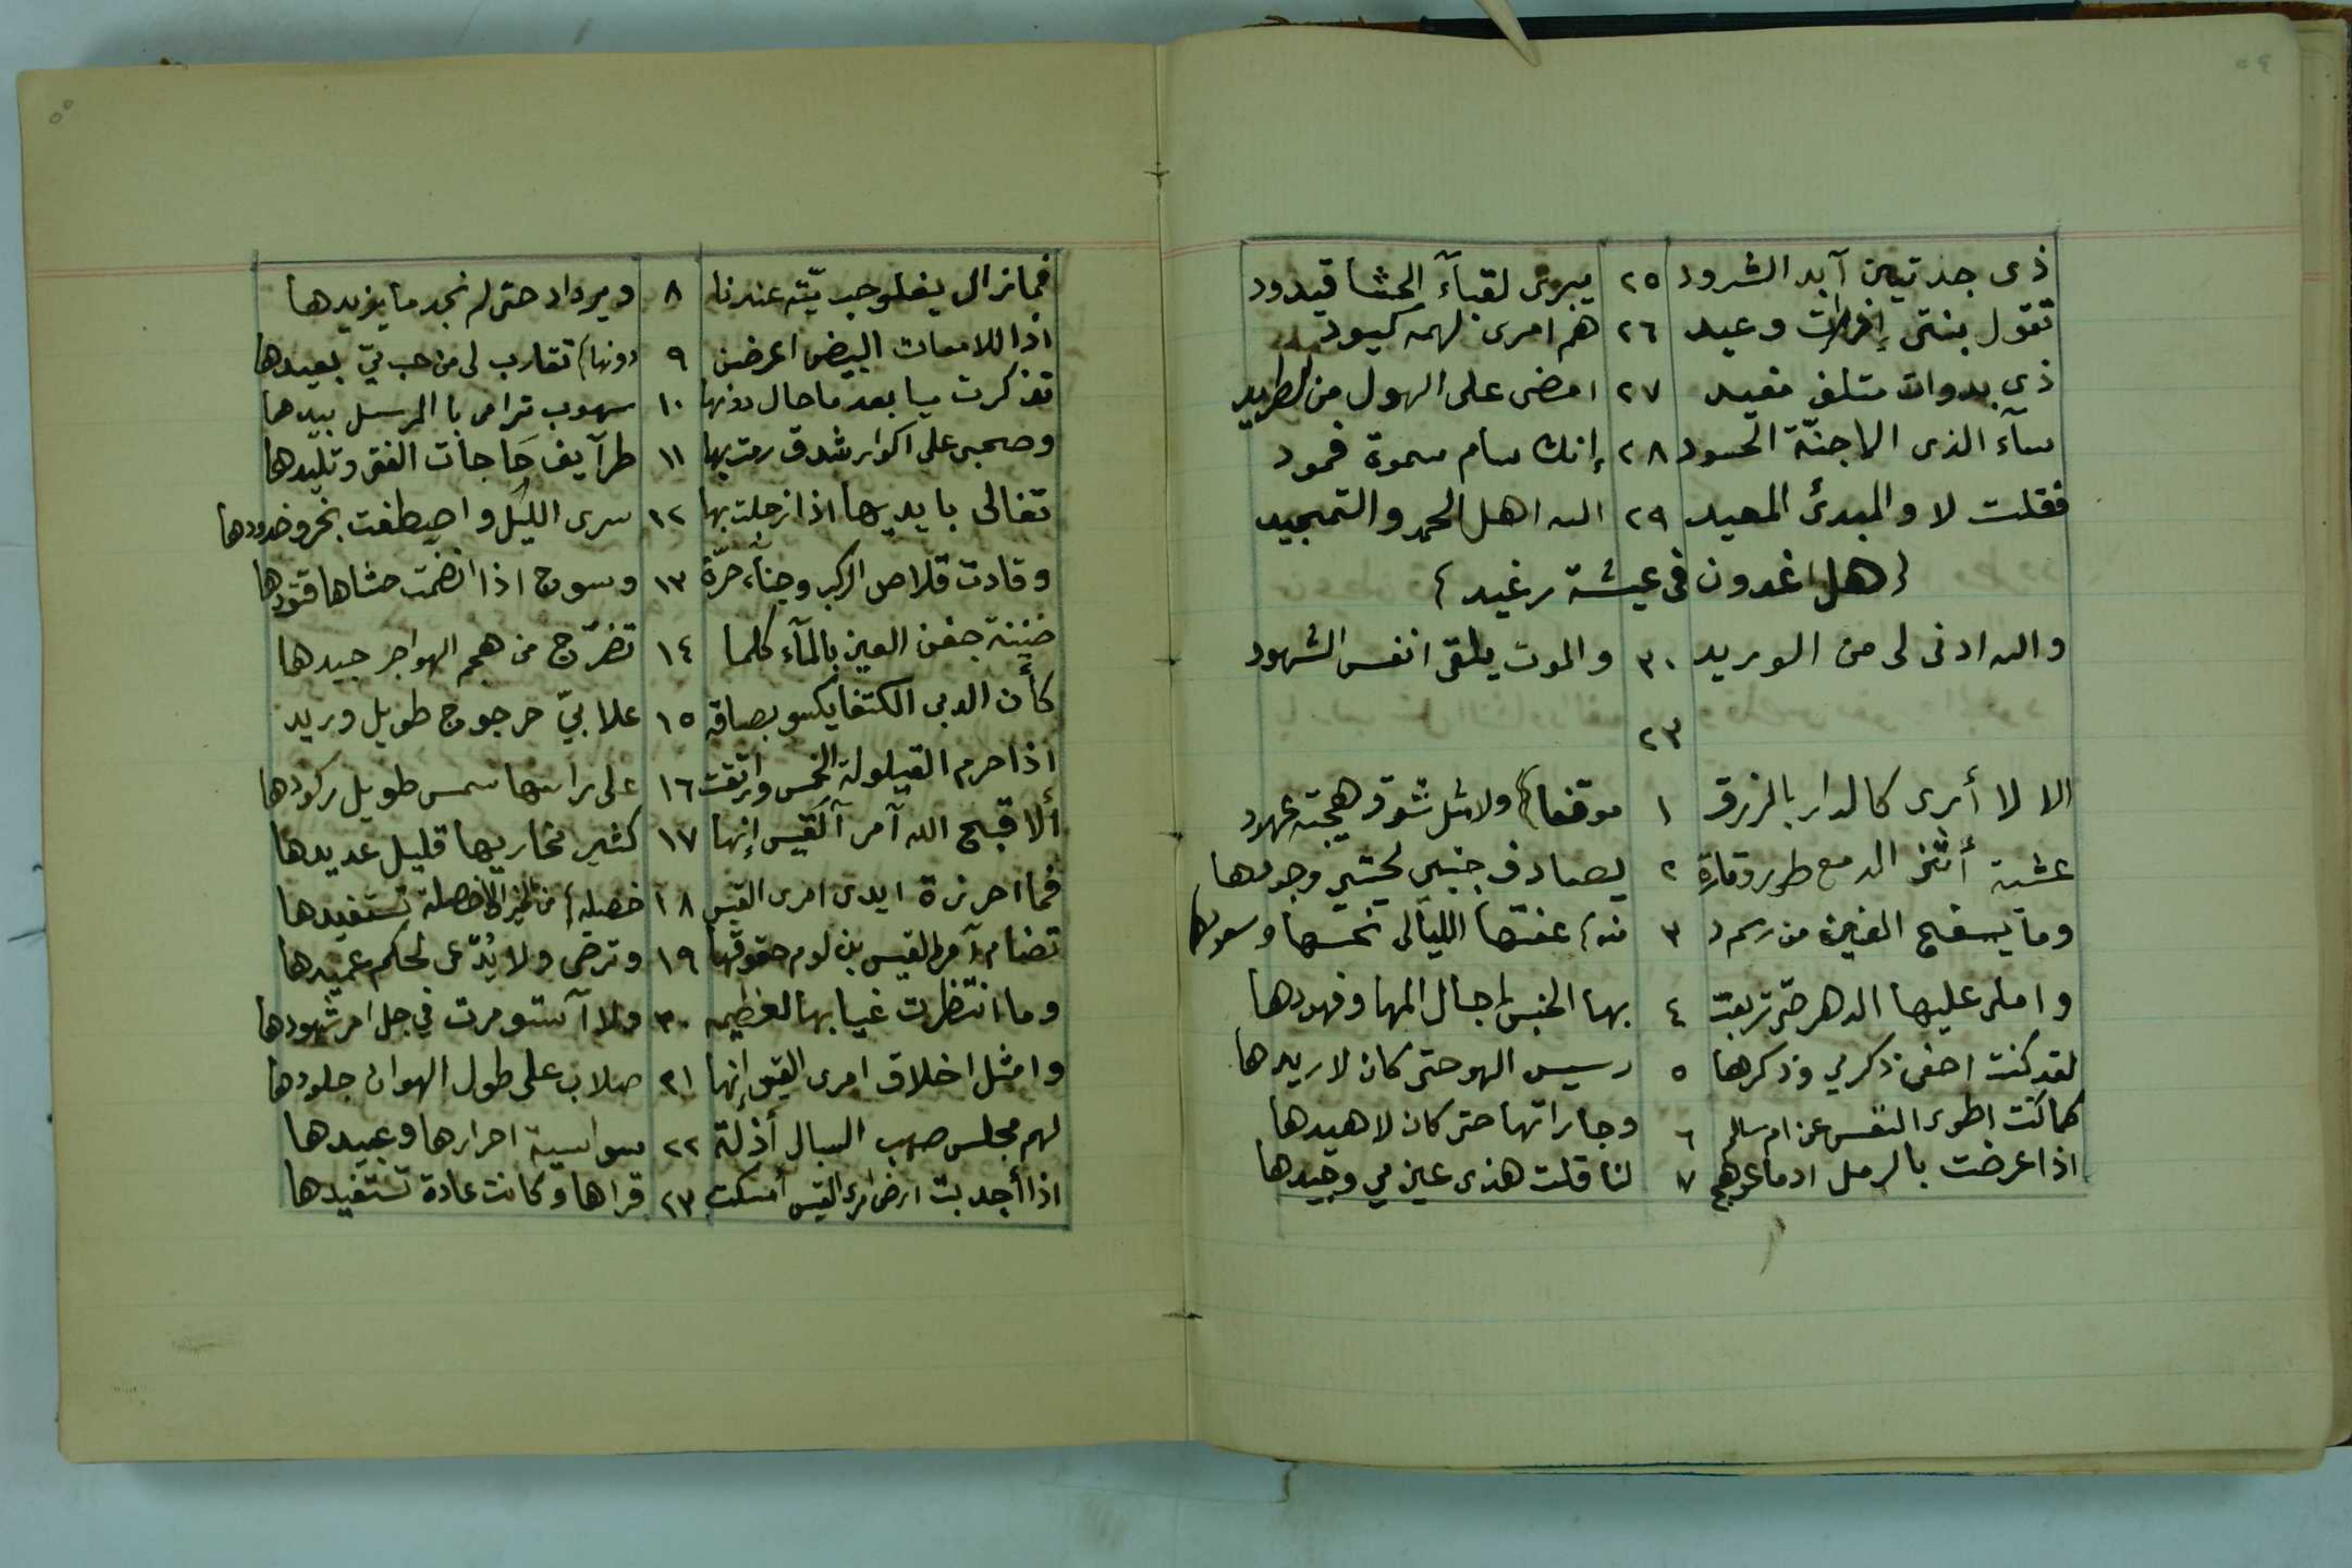 ذى جدتين آبد الشرود ٢٥ يبرى لقبآء الحشا قيدود
تقول بنتى إفرات وعيد ٢٦ هم امرئ لهمه كيود
ذى بدوات متلف مفيد ٢٧ امضى على الهول من الطريد
سآء الذى الاجنّة الحسود ٢٨ إنك سام سموة فمود
فقلت لا والمبدئ المعيد ٢٩ الله اهل الحمد والتمجيد
(هل اغدون فى عيشة رغيد)
والله ادنى لى من الوريد ٣٠ والموت يلقى انفس الشهود
٢٣
الا لا أرى كالدار بالزرق ١ موقفا) ولا مثل شوق هيجته عهود
عشية أثنى الدمع طورو تارة ٢ يصادف جنبى لحيتى وجودها
وما يسفح العين من رسم د ٣ منه) عفتها الليالى نحسها وسعودها
واملى عليها الدهر حتى تربعت ٤ بها الخنس اجال المها وفهودها
لقد كنت اخفى ذكر مي وذكرها ٥ رسيس الهو حتى كان لا ريدها
كما كنت اطوى النفس عن ام سالم ٦ وجاراتها حتى كان لا هيدها
اذا عرضت بالرمل ادما عوهج ٧ لنا قلت هذى عين مي وجيدها
فما زال يغلو حب ميّة عندنا ٨ ويرداد حتى لم نجد ما يزيدها
اذا اللامعات البيض اعرضن ٩ دونها) تقارب لى من حب ميّ بعيدها
تذكرت ميا بعد ما حال دونها ١٠ سهوب ترامى با المرسل بيدها
وصحبى على اكوار شدق رمت بها ١١ طرآيف حَاجات الفتى وتليدها
تغالى بايديها اذا زجلت بها ١٢ سرى الليل واصطفت بخرو خدودها
وقادت قلاص الركب وجنآء حرّة ١٣ وسوج اذا انضمت حشاها قتودها
ضنينة جفن العين بالمآء كلما ١٤ تضرّج من هجم الهواجر جيدها
كأن الدبى الكتفا يكسو بصاقه ١٥ علابيّ حرجوج طويل وريد
اذا حرم القيلولة الخمس وارتقت ١٦ على راسها شمس طويل ركودها
ألا قبح الله آمر آلقيس إنها ١٧ كثير مخازيها قليل عديدها
فما احرزة ايدى امرى القيس ١٨ خصيلة) من الخير الا خصلة تستفيدها
تضام امرا القيس بن لوم حقوقها ١٩ وترضى ولا يُدّعى لحكم عميدها
وما انتظرت غيابها لعظيمه ٢٠ ولا آستومرت في جل امر شهودها
وامثل اخلاق امرى القيس إنها ٢١ صلاب على طول الهوان جلودها
لهم مجلس صهب السبال أذلة ٢٢ سواسية احرارها وعبيدها
اذا أجدبت ارض امرئ القيس أمسكت ٢٣ قراها وكانت عادة تستفيدها